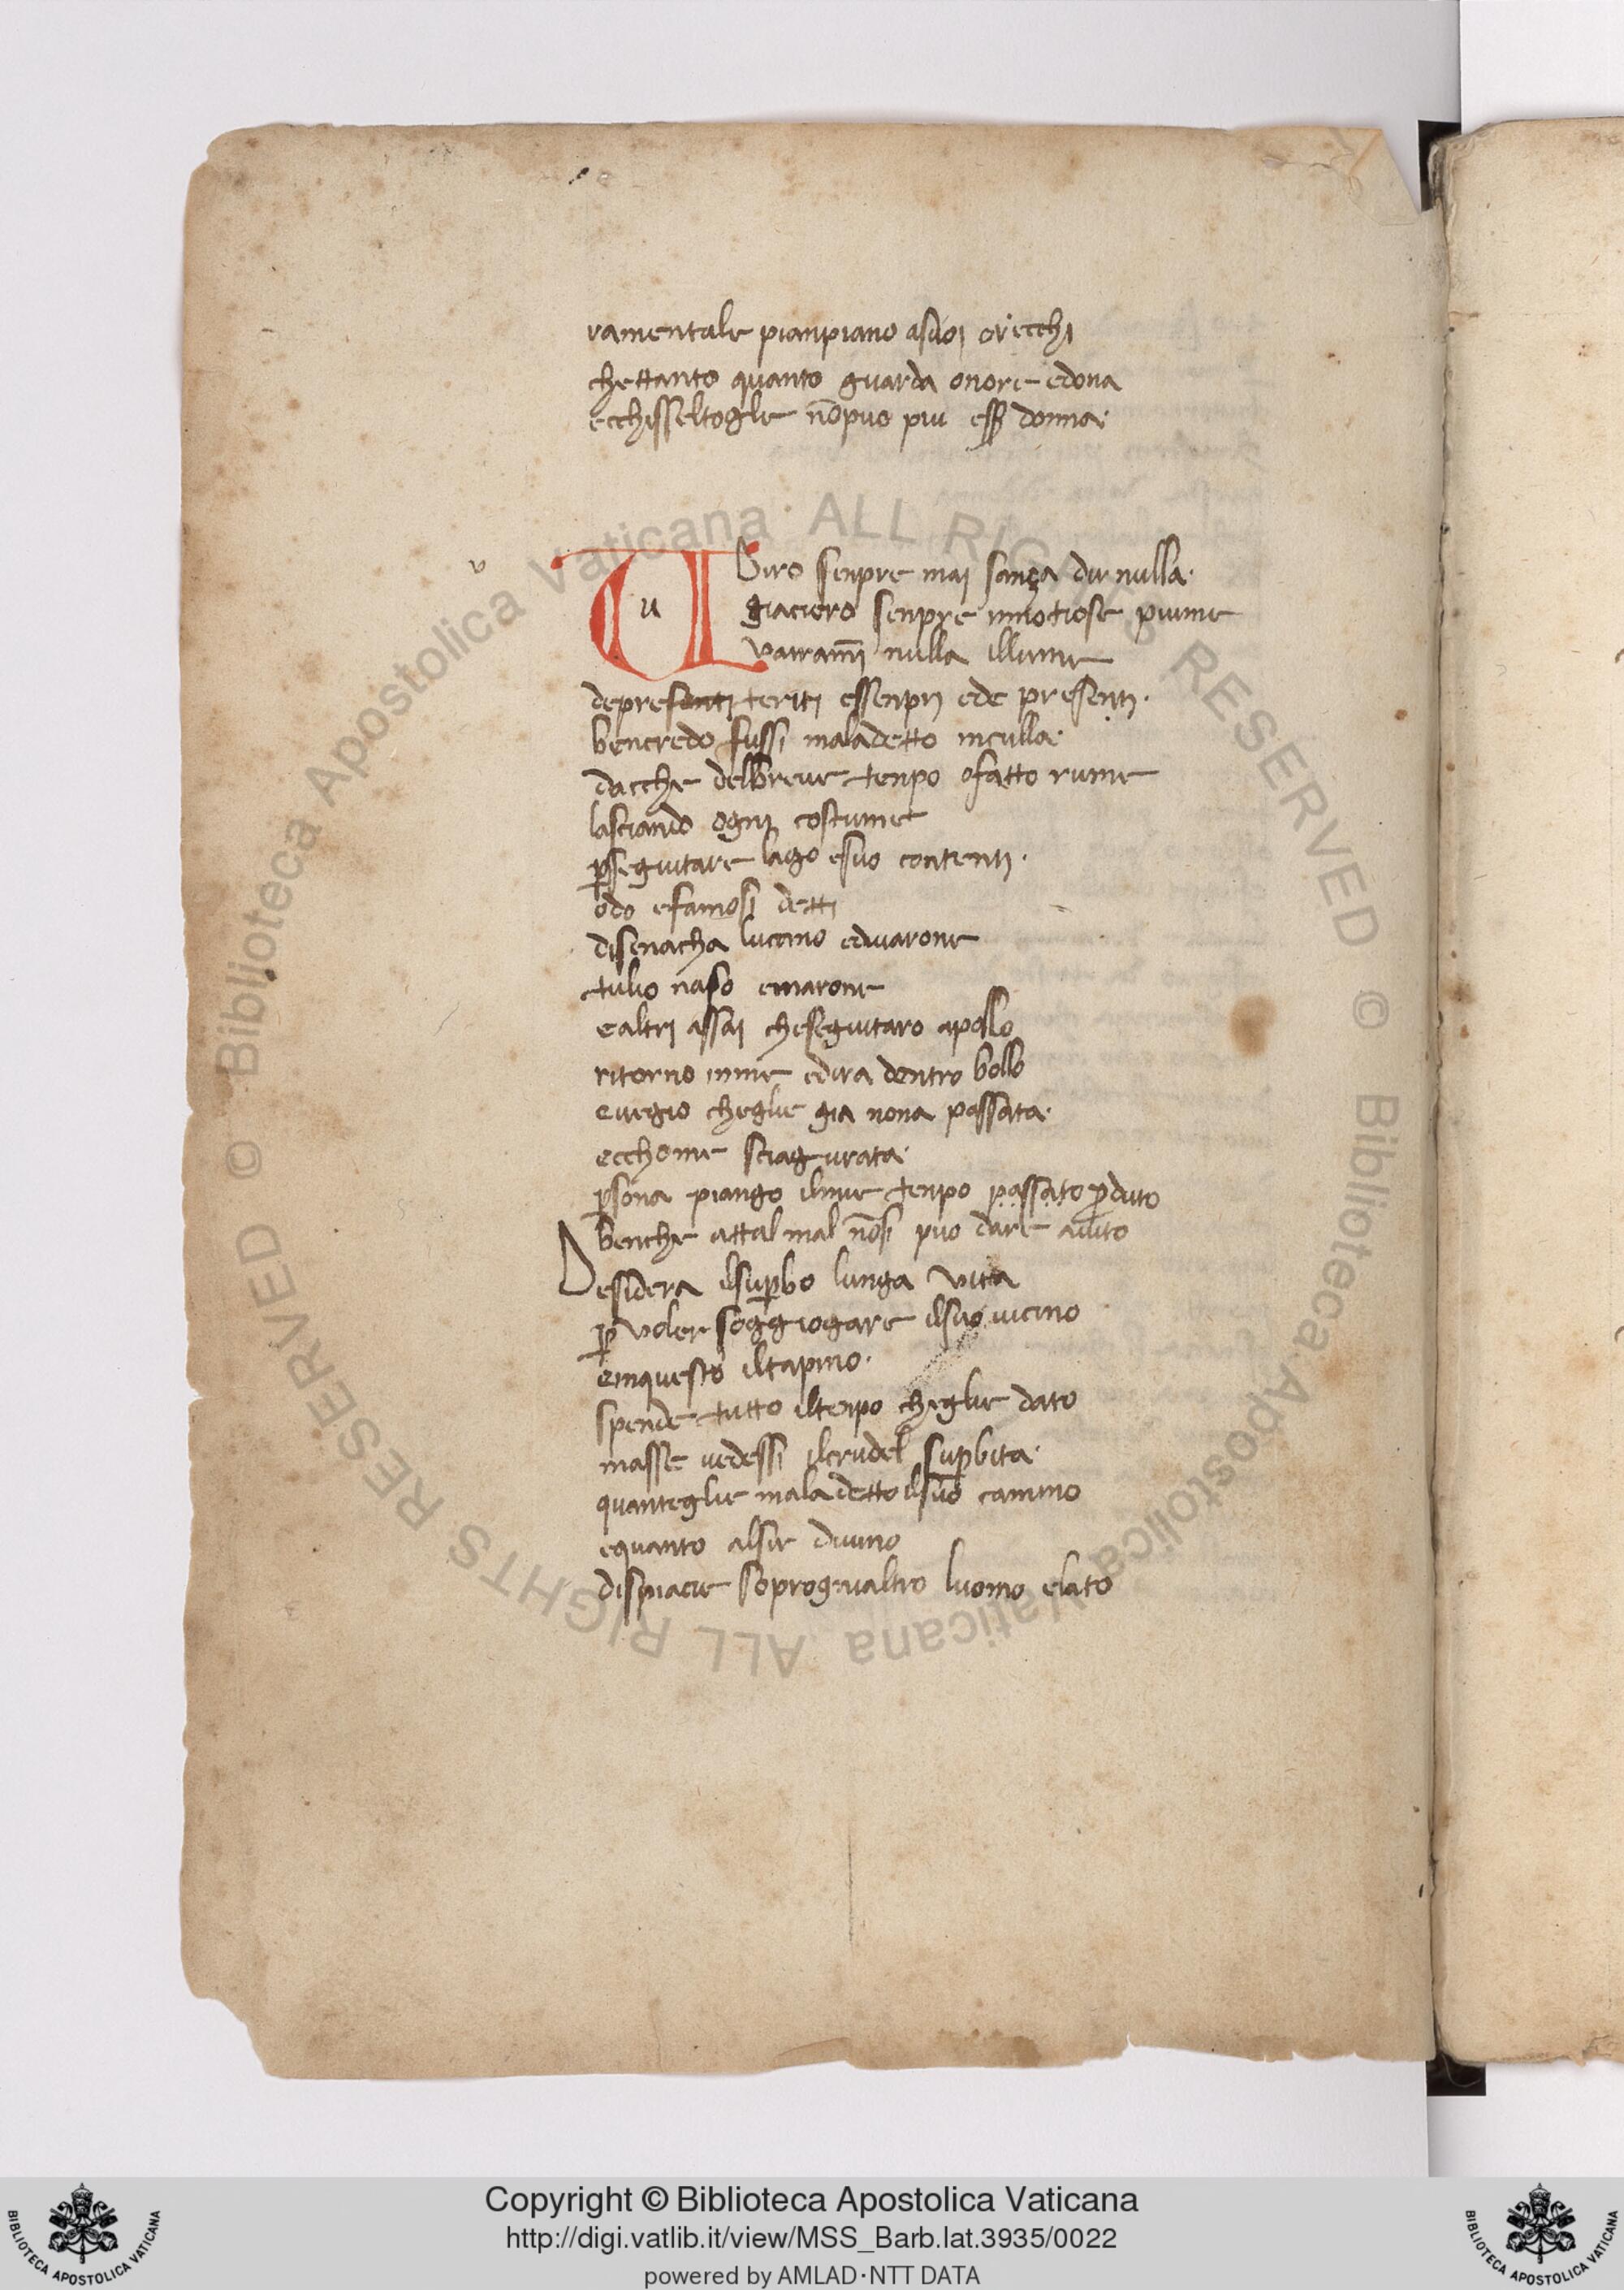 ramentale pianpiano asuoi orecchi
chettanto quanto guarda onore edona
ecchisseltoglie nōpuo piu eſſ donna·
v
U
u
Viro senpre mai sança dir nulla·
giaciero senpre innotiose piume
varranmi nulla illume
depresenti teriti essenpri ede presenti·
bencredo fussi maladetto inculla·
dacche delbreue tenpo ofatto rume
lasciando ogni costume
ꝑseguitare lago esuo contenti·
odo efamosi detti
disenacha lucano eduarone
tulio naso emarone
ealtri assai cheseguitaro apollo
ritorno inme edira dentro bollo
euegio cheglie gia nona passata·
ecchome sciagurata·
ꝑsona piango ilmie tenpo passato ꝑduto
benche attal mal nōsi puo dare aiuto
Desidera ilsuꝑbo lunga vita
ꝑ voler soggiogare ilsuo uicino
einquesto iltapino·
spende tutto iltenpo cheglie dato
masse uedessi ilcrudel suꝑbita·
quanteglie maladetto ilsuo camino
equanto alsir diuino
dispiacie soprognaltro luomo elato
Copyright © Biblioteca Apostolica Vaticana
http://digi.vatlib.it/view/MSS_Barb.lat.3935/0022
powered by AMLAD·NTT DATA
BIBLIOTECA APOSTOLICA VATICANA
BIBLIOTECA APOSTOLICA VATICANA
© Biblioteca Apostolica Vaticana · ALL RIGHTS RESERVED © Biblioteca Apostolica Vaticana ALL RIGHTS RESERVED